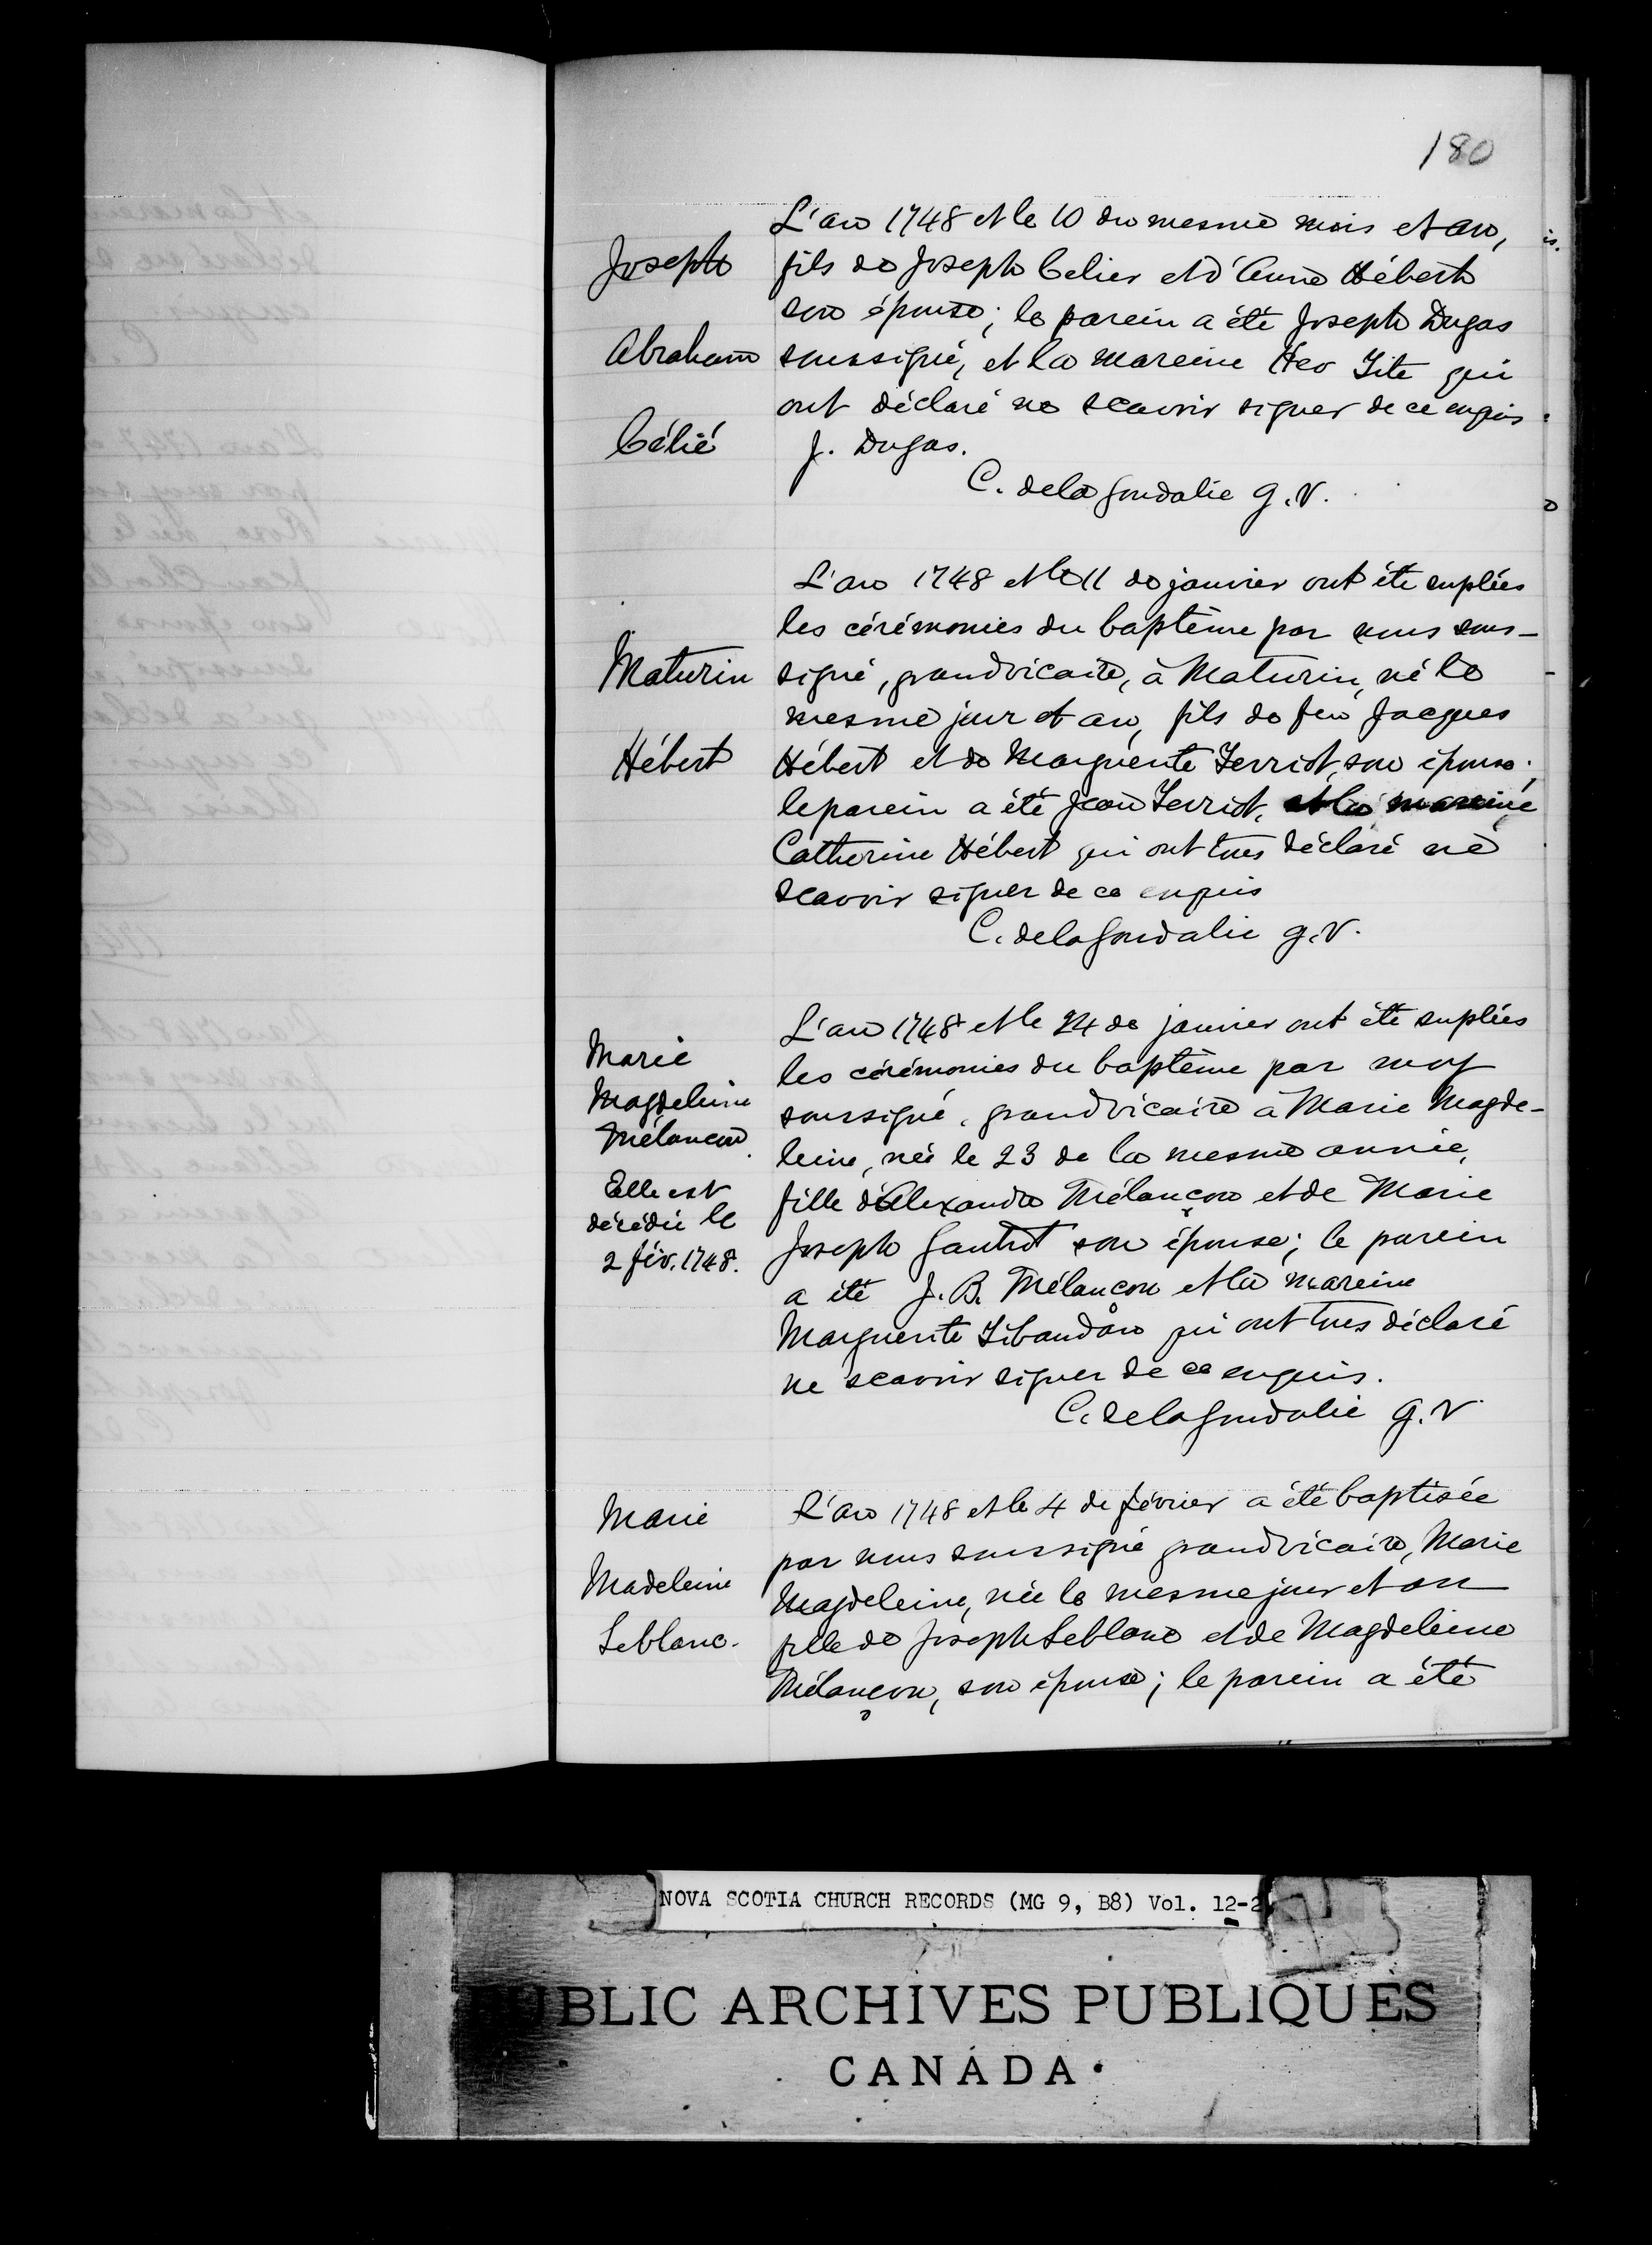 180
Joseph
Abraham
Célié
L'an 1748 et le 10 du mesme mois et an,
fils de Joseph Celier et d'Anne Hébert
son épouse; le parein a été Joseph Dugas
soussigné, et la mareine qui
ont déclaré ne scavoir signer de ce enquis
J. Dugas.
C. de la Goudalie g.V.
Maturin
Hébert
L'an 1748 et le 11 de janvier ont été suplées
les cérémonies du baptême par nous sous-
signé, grandvicaire, à Maturin, né le
mesme jour et an, fils de feu Jacques
Hébert et de Marguerite Terriot, son épouse;
le parein a été Jean Terriot, et la mareine
Catherine Hébert qui ont tous déclaré ne
scavoir signer de ce enquis
C. de la Goudalie g.V.
Marie
Magdeleine
Mélançon.
Elle est
décédée le
2 fév. 1748.
L'an 1748 et le 24 de janvier ont été suplées
les cérémonies du baptême par moy
soussigné, grandvicaire à Marie Magde-
leine, née le 23 de la mesme année,
fille d'Alexandre Mélançon et de Marie
Joseph Gautrot son épouse; le parein
a été J. B. Mélançon et la mareine
Marguerite Tibaudau qui ont tous déclaré
ne scavoir signer de ce enquis.
C. de la Goudalie g.V
Marie
Madeleine
Leblanc.
L'an 1748 et le 4 de février a été baptisée
par nous soussigné grandvicaire, Marie
Magdeleine, née le mesme jour et an
fille de Joseph Leblanc et de Magdeleine
Mélançon, son épouse; le parein a été
NOVA SCOTIA CHURCH RECORDS (MG 9, B8) Vol. 12-2
PUBLIC ARCHIVES PUBLIQUES
CANADA